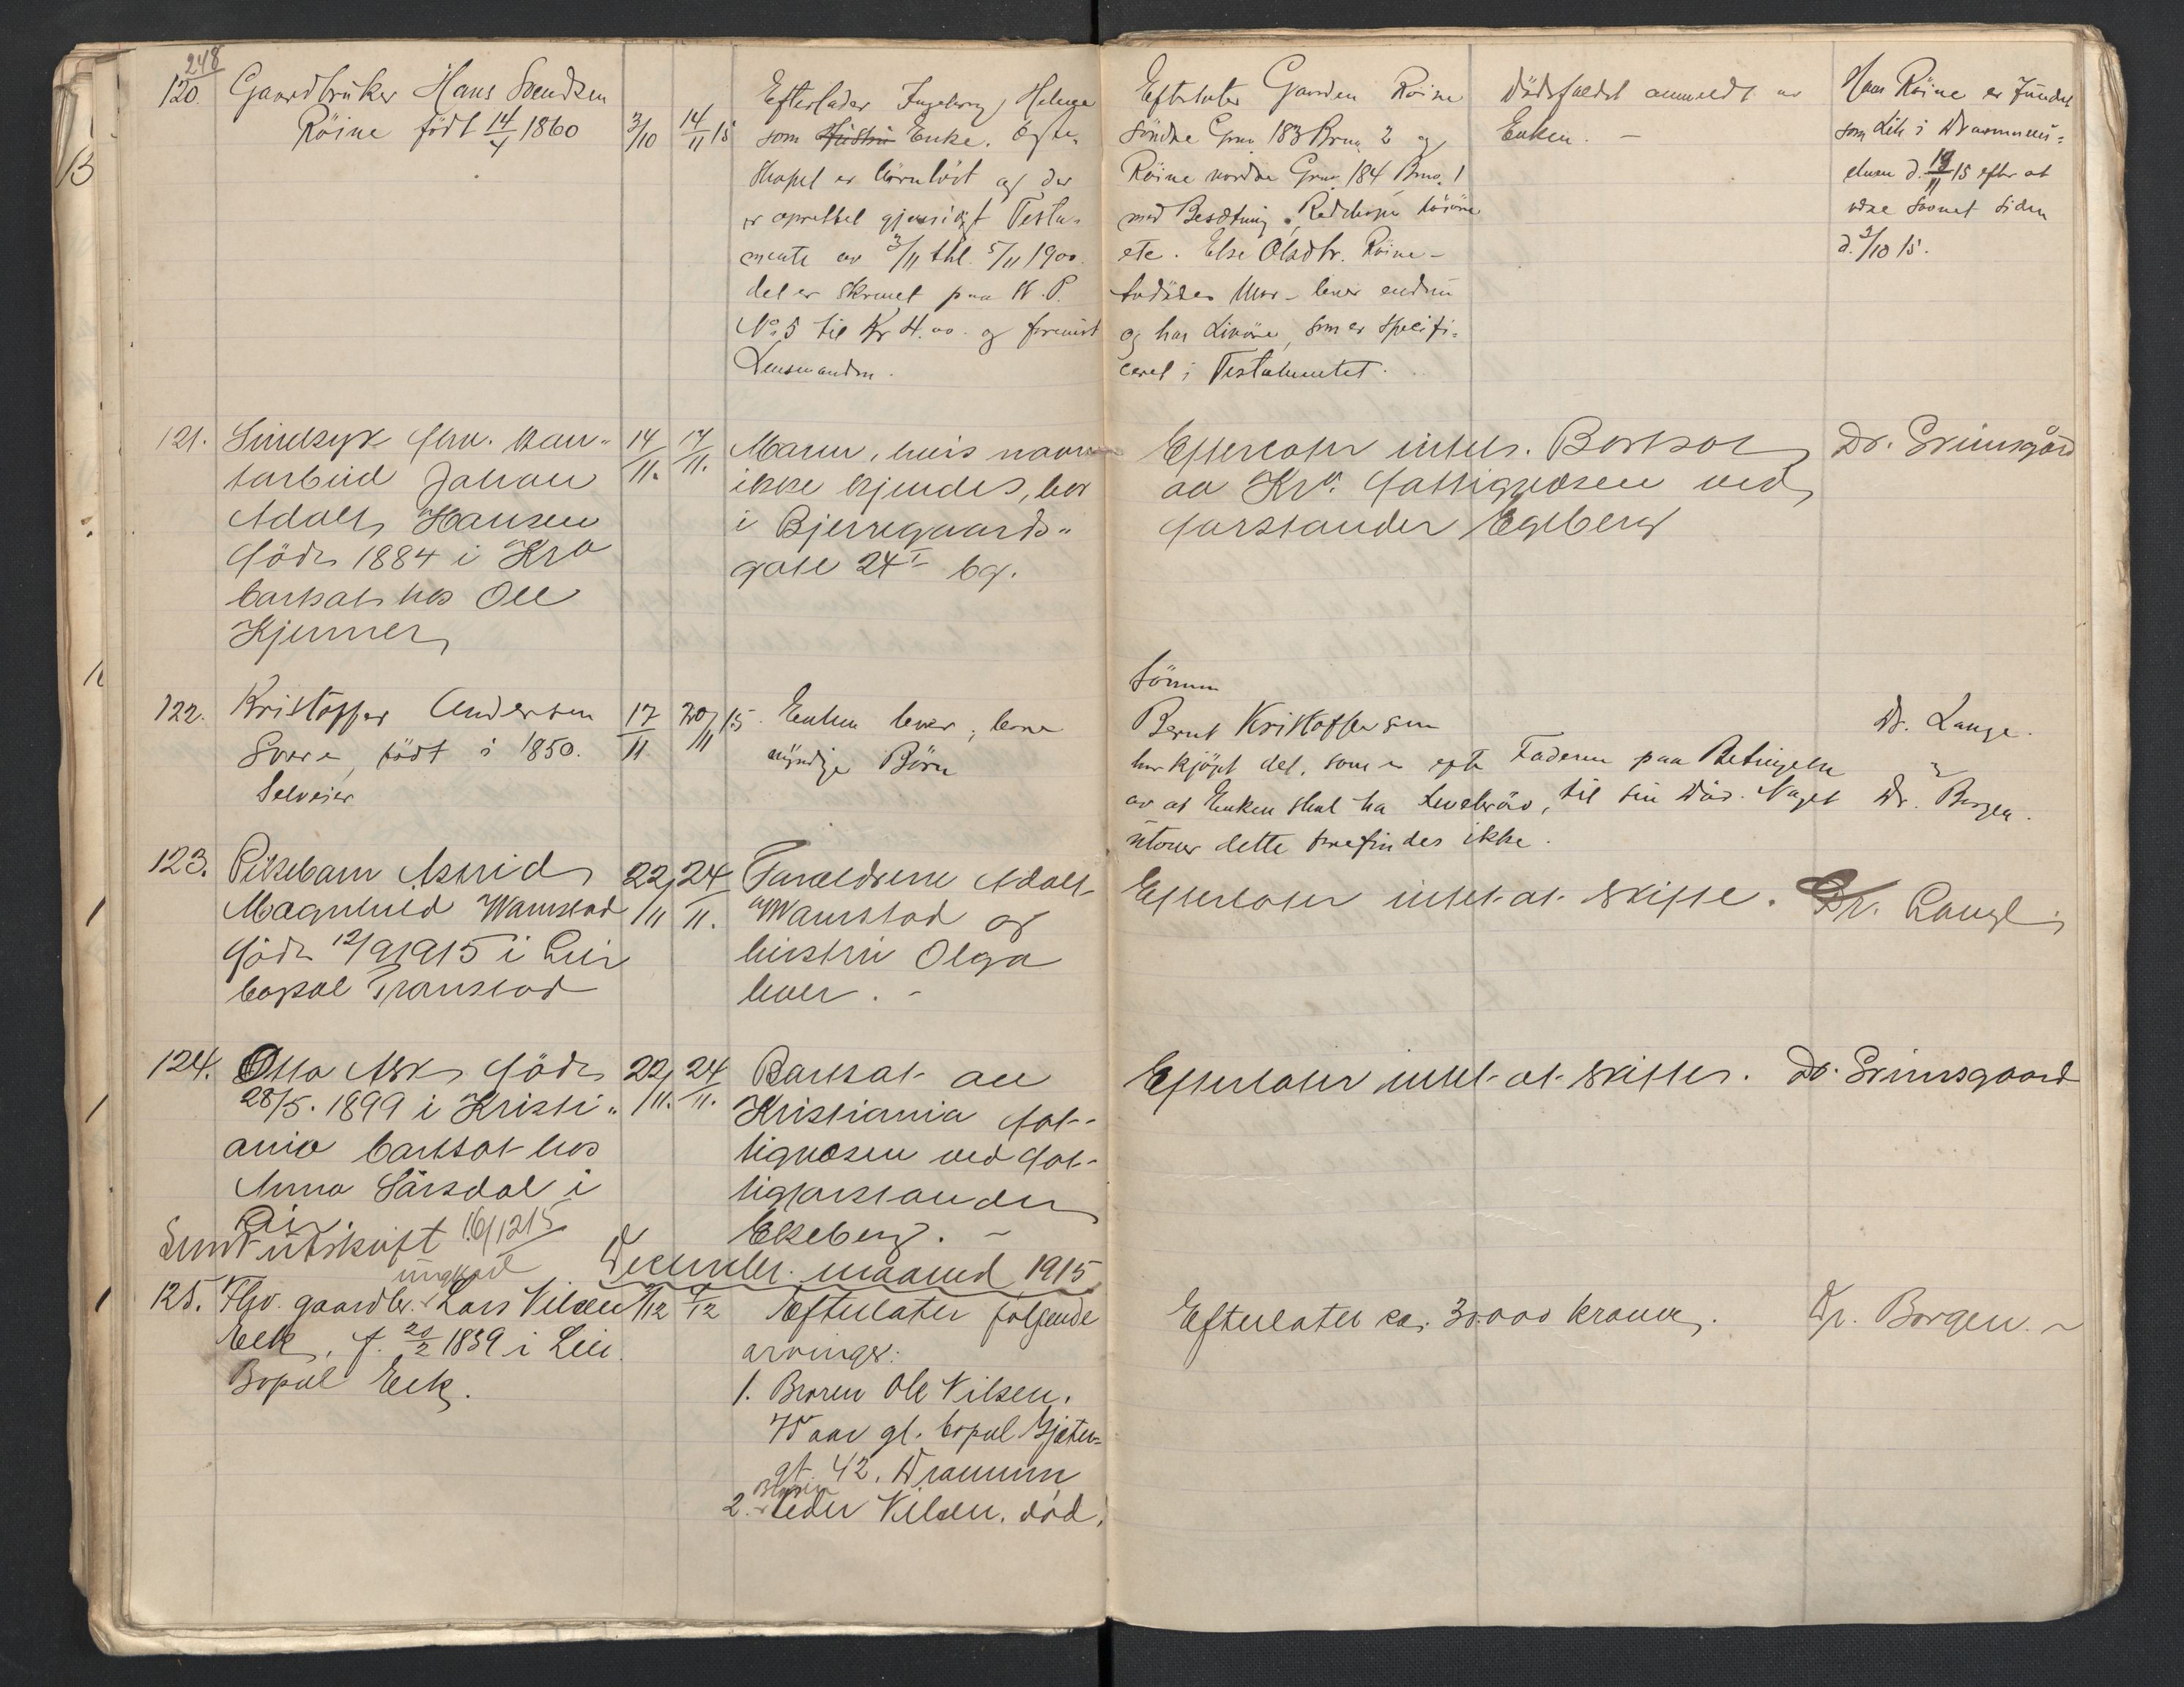 248
120. Gaardbruker Hans Svendsen
Röine födt 14/4 1860
3/10 14/11 15
Efterlader Ingeborg Helene
som Hustru Enke. Ægte-
skapet er barnlöst og der
er oprettet gjensidigt Testa-
mente av 3/11 thl. 5/11 1900.
det er skrevet paa K. P.
No. 5 til Kr 4.00. og forevist
Lensmanden.
Efterlater Gaarden Röine
Söndre Gno 183 Bruno 2 og
Röine nordre Gno. 184 Bno. 1
med Besætning, Redskaper
etc. Else Olsdtr. Röine -
Mor - lever endnu
og har Livöre, som er specifi-
ceret i Testamentet.
Dödsfaldet anmeldt av
Enken. -
Hans Röine er fundet
som Lik i Drammens-
elven d. 13/11 15 efter at
være savnet siden
d. 3/10 15.
121. Sindsyk fhv.
tarbeid Johan
Adolf Hansen
född 1884 i Kra
bortsat hos Ole
Kjenner
14/11. 17/11.
Moren, hvis navn
ikke kjendes, bor
i Bjerregaards-
gate 24 I bg.
Efterlater intet. Bortsat
av Kra. fattigvæsen ved
forstander Egeberg
Dr. Grimsgård
122. Kristoffer Andersen
Svere, födt i 1850.
Selveier
17/11 20/11 15.
Enken lever;
myndige Börn
Sönnen
Bernt Kristoffersen
har kjöpt det, som er efter Faderen paa Betingelse
av at Enken skal ha Levebröd, til sin Död. Noget
utover dette forefindes ikke.
Dr. Lange.
Dr. Borgen.
123. Pikebarn Astrid
Magnhild Wamstad
född 12/9 1915 i Lier
bopæl Tranestad
22/11 24/11.
Forældrene Adolf
Wamstad og
hustru Olga
lever. -
Efterlater intet at skifte.
Dr. Lange
124. Otto Ask född
28/5. 1899 i Kristi-
ania bortsat hos
Anna Sörsdal i
Lier.
22/11. 24/11.
Bortsat av
Kristiania fat-
tigvæsen ved fat-
tigforstander
Ekeberg. -
Efterlater intet at skifte.
Dr. Grimsgaard
Sendt utskrift 16/12 15
December maaned 1915
125. Fhv. gaardbr. ungkarl Lars Nilsen
Eek, f. 20/2 1839 i Lier.
Bopæl Eek.
Efterlater følgende
arvinger:
1. Broren Ole Nilsen.
75 aar gl. bopæl Gjæter-
gt. 42, Drammen
2. Broren Peder Nilsen. død.
Efterlater ca. 30.000 kroner.
Dr. Borgen. -